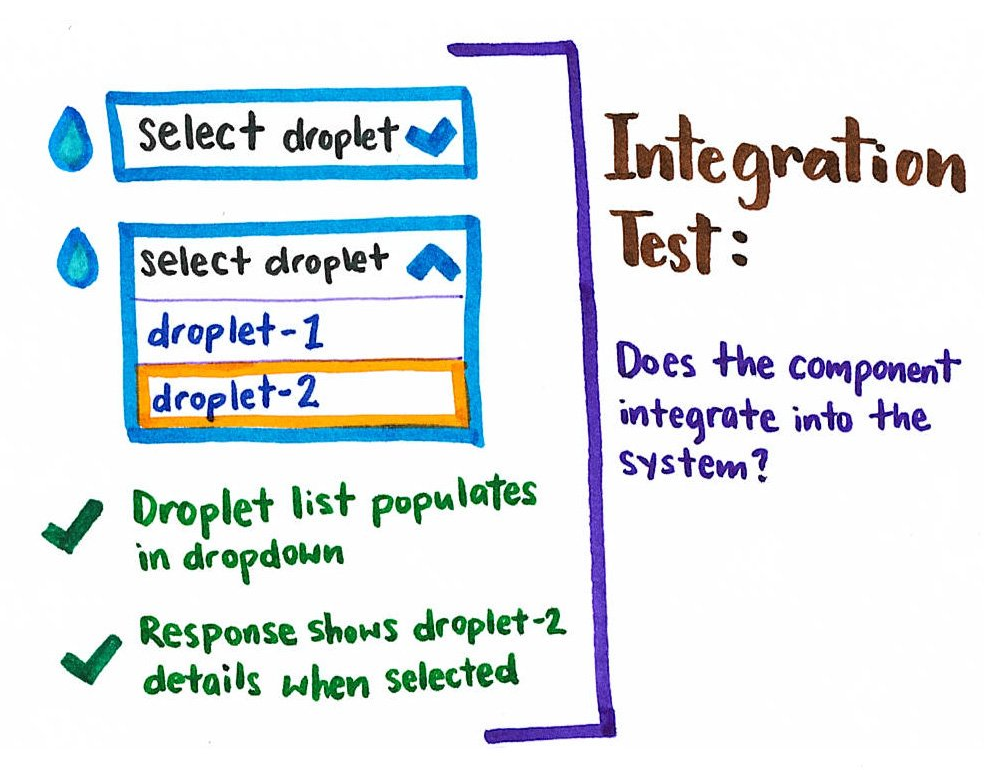 select droplet
select droplet
droplet-1
droplet-2
Droplet list populates
in dropdown
Response shows droplet-2
details when selected
Integration
Test:
Does the component
integrate into the
system?